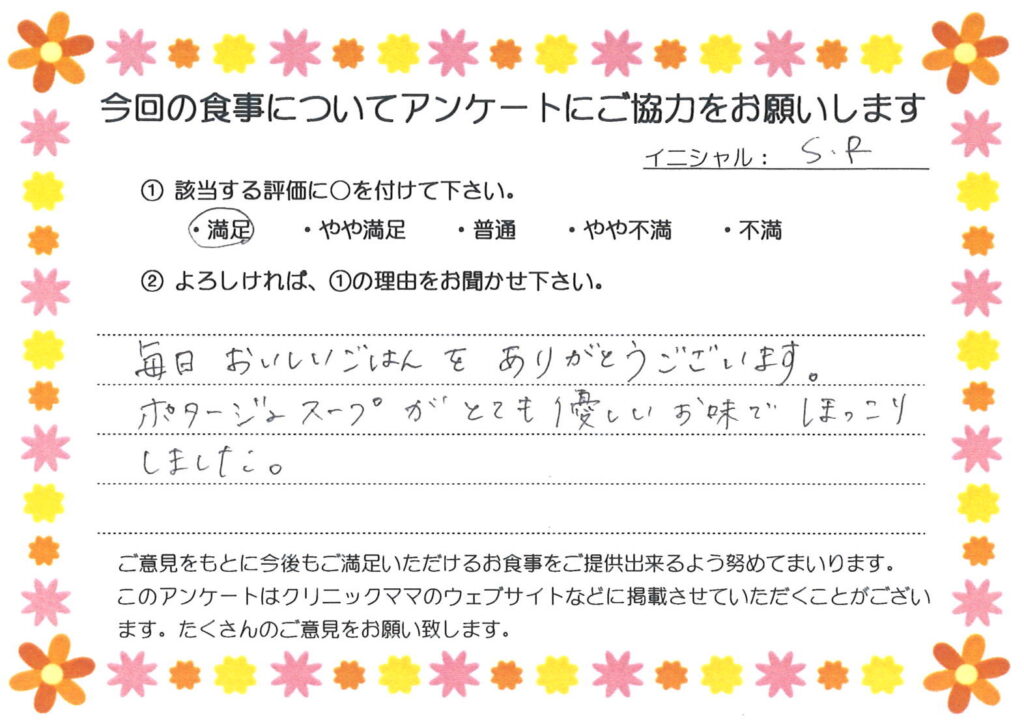 今回の食事についてアンケートにご協力をお願いします
イニシャル： S.R
① 該当する評価に○を付けて下さい。
・満足 ・やや満足 ・普通 ・やや不満 ・不満
② よろしければ、①の理由をお聞かせ下さい。
毎日 おいしいごはん を ありがとうございます。
ポタージュスープ が とても 優しい お味で ほっこり
しました。
ご意見をもとに今後もご満足いただけるお食事をご提供出来るよう努めてまいります。
このアンケートはクリニックママのウェブサイトなどに掲載させていただくことがござい
ます。たくさんのご意見をお願い致します。